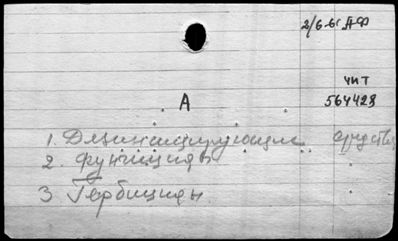 2/6-61 АФ
чит
564428
А
1. Дезинфицирующие средства
2. Фунгициды
3 Гербициды